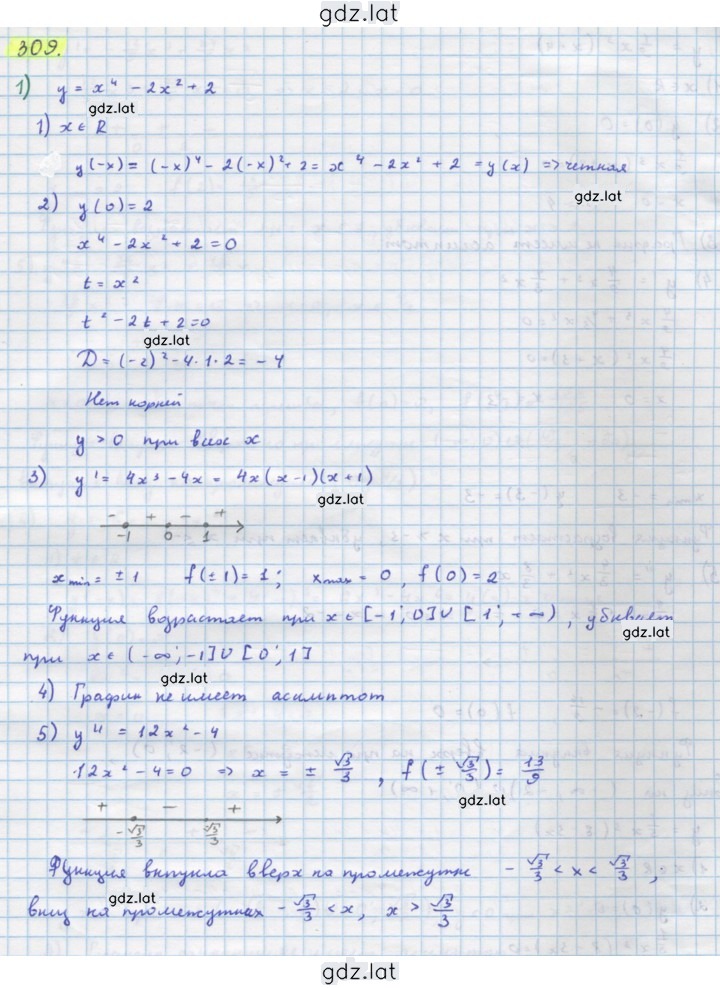 gdz.lat
309.
1) y = x⁴ - 2x² + 2
gdz.lat
1) x ∈ R
y(-x) = (-x)⁴ - 2(-x)² + 2 = x⁴ - 2x² + 2 = y(x) => четная
gdz.lat
2) y(0) = 2
x⁴ - 2x² + 2 = 0
t = x²
t² - 2t + 2 = 0
gdz.lat
D = (-2)² - 4·1·2 = -4
Нет корней
y > 0 при всех x
3) y' = 4x³ - 4x = 4x(x-1)(x+1)
gdz.lat
- + - +
-1 0 1
x min = ±1 f(±1) = 1; x max = 0, f(0) = 2
Функция возрастает при x ∈ [-1; 0] ∪ [1; +∞), убывает
gdz.lat
при x ∈ (-∞; -1] ∪ [0; 1]
gdz.lat
4) График не имеет асимптот
5) y'' = 12x² - 4
12x² - 4 = 0 => x = ± √3/3, f(± √3/3) = 13/9
gdz.lat
+ - +
-√3/3 √3/3
Функция выпукла вверх на промежутке -√3/3 < x < √3/3;
gdz.lat
вниз на промежутках -√3/3 < x, x > √3/3
gdz.lat